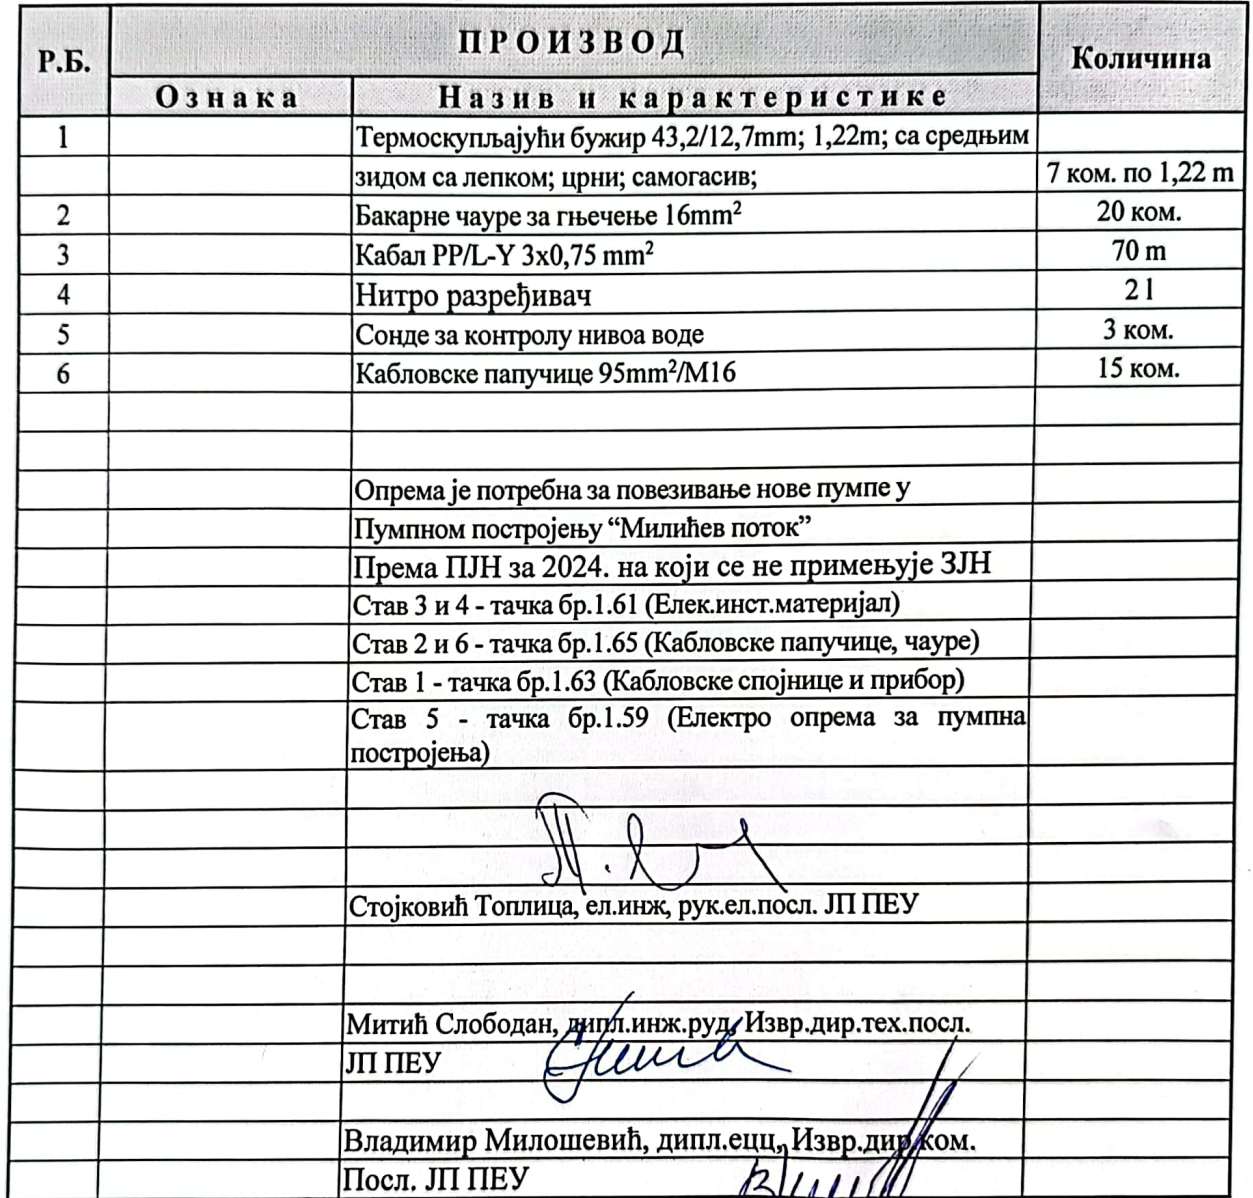 Р.Б. ПРОИЗВОД Количина
Ознака Назив и карактеристике
1 Термоскупљајући бужир 43,2/12,7mm; 1,22m; са средњим
зидом са лепком; црни; самогасив; 7 ком. по 1,22 m
2 Бакарне чауре за гњечење 16mm² 20 ком.
3 Кабал PP/L-Y 3x0,75 mm² 70 m
4 Нитро разређивач 2 l
5 Сонде за контролу нивоа воде 3 ком.
6 Кабловске папучице 95mm²/M16 15 ком.
Опрема је потребна за повезивање нове пумпе у
Пумпном постројењу “Милићев поток”
Према ПЈН за 2024. на који се не примењује ЗЈН
Став 3 и 4 - тачка бр.1.61 (Елек.инст.материјал)
Став 2 и 6 - тачка бр.1.65 (Кабловске папучице, чауре)
Став 1 - тачка бр.1.63 (Кабловске спојнице и прибор)
Став 5 - тачка бр.1.59 (Електро опрема за пумпна
постројења)
Стојковић Топлица, ел.инж, рук.ел.посл. ЈП ПЕУ
Митић Слободан, дипл.инж.руд. Извр.дир.тех.посл.
ЈП ПЕУ
Владимир Милошевић, дипл.ецц, Извр.дир.ком.
Посл. ЈП ПЕУ